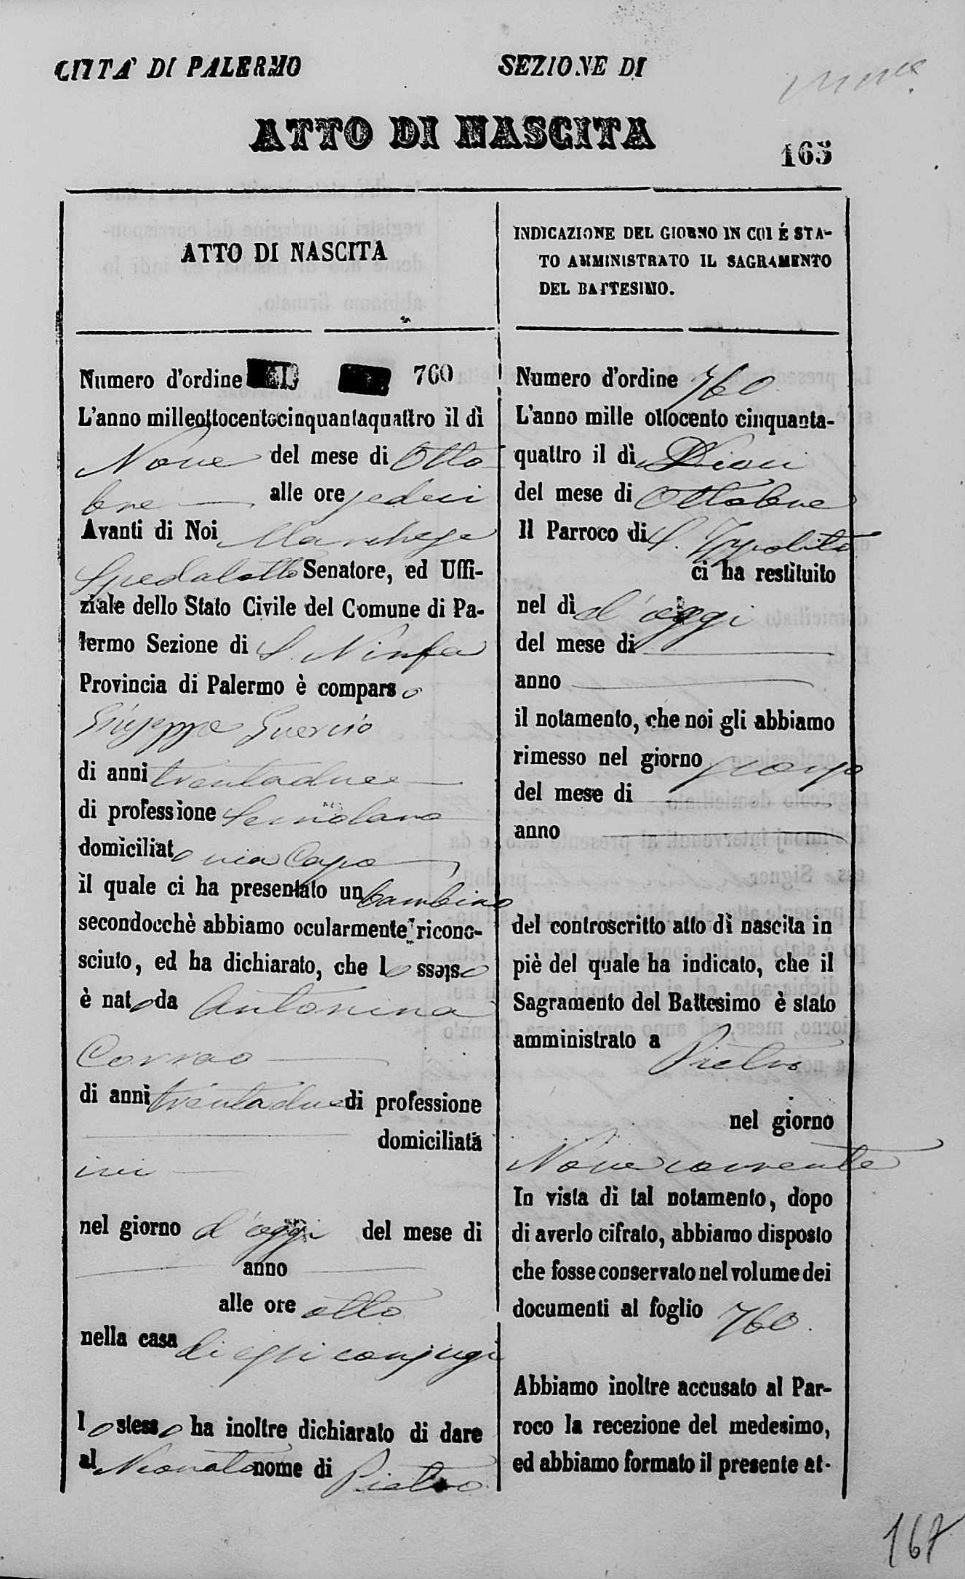 CITTA' DI PALERMO SEZIONE DI
ATTO DI NASCITA
165
ATTO DI NASCITA
Numero d'ordine 760
L'anno milleottocentocinquantaquattro il dì
Nove del mese di Otto
bre alle ore sedici
Avanti di Noi Marchese
Spedalotto Senatore, ed Uffi-
ziale dello Stato Civile del Comune di Pa-
lermo Sezione di S. Ninfa
Provincia di Palermo è comparso
Giuseppe Guercio
di anni trentadue
di professione
domiciliato via Capo
il quale ci ha presentato un bambino
secondocchè abbiamo ocularmente ricono-
sciuto, ed ha dichiarato, che lo stesso
è nato da Antonina
Corrao
di anni trentadue di professione
domiciliata
ivi
nel giorno d'oggi del mese di
anno
alle ore otto
nella casa di essi conjugi
lo stesso ha inoltre dichiarato di dare
al Neonato nome di Pietro
INDICAZIONE DEL GIORNO IN CUI È STA-
TO AMMINISTRATO IL SAGRAMENTO
DEL BATTESIMO.
Numero d'ordine 760
L'anno mille ottocento cinquanta-
quattro il dì Dieci
del mese di Ottobre
Il Parroco di S. Ippolito
ci ha restituito
nel dì d'oggi
del mese di
anno
il notamento, che noi gli abbiamo
rimesso nel giorno
del mese di
anno
del controscritto atto di nascita in
piè del quale ha indicato, che il
Sagramento del Battesimo è stato
amministrato a Pietro
nel giorno
Nove corrente
In vista di tal notamento, dopo
di averlo cifrato, abbiamo disposto
che fosse conservato nel volume dei
documenti al foglio 760
Abbiamo inoltre accusato al Par-
roco la recezione del medesimo,
ed abbiamo formato il presente at-
167